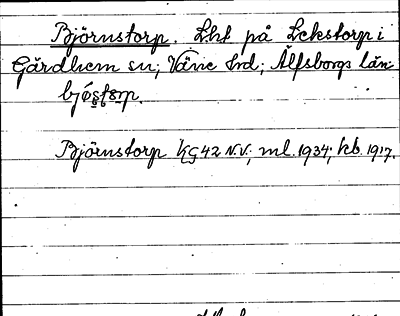 Björnstorp. Lht på Lekstorp i
Gärdhem sn; Väne hd; Älfsborgs län
Björnstorp KG42 N.V; ml. 1934; kb. 1917.